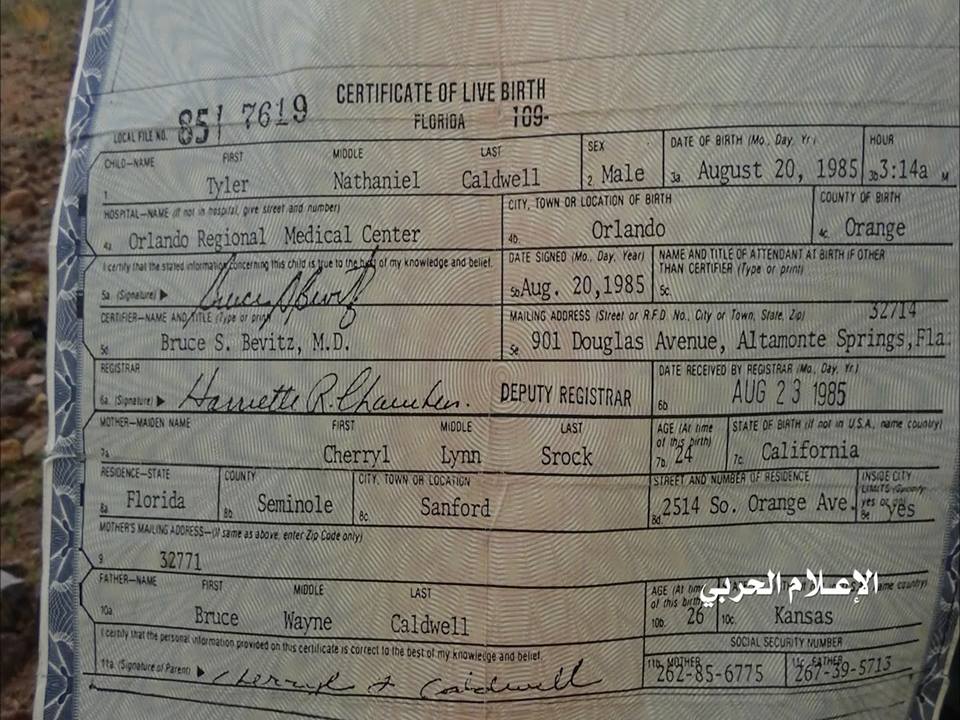 CERTIFICATE OF LIVE BIRTH
FLORIDA 109-
LOCAL FILE NO. 851 7619
CHILD—NAME FIRST MIDDLE LAST SEX DATE OF BIRTH (Mo., Day, Yr.) HOUR
1. Tyler Nathaniel Caldwell 2. Male 3a. August 20, 1985 3b. 3:14a M
HOSPITAL—NAME (If not in hospital, give street and number) CITY, TOWN OR LOCATION OF BIRTH COUNTY OF BIRTH
4a. Orlando Regional Medical Center 4b. Orlando 4c. Orange
I certify that the stated information concerning this child is true to the best of my knowledge and belief. DATE SIGNED (Mo., Day, Year) NAME AND TITLE OF ATTENDANT AT BIRTH IF OTHER
THAN CERTIFIER (Type or print)
5a. (Signature) ▶ 5b. Aug. 20,1985 5c.
CERTIFIER—NAME AND TITLE (Type or print) MAILING ADDRESS (Street or R.F.D. No., City or Town, State, Zip) 32714
5d. Bruce S. Bevitz, M.D. 5e. 901 Douglas Avenue, Altamonte Springs,Fla.
REGISTRAR DATE RECEIVED BY REGISTRAR (Mo., Day, Yr.)
6a. (Signature) ▶ Harriette R. DEPUTY REGISTRAR 6b. AUG 23 1985
MOTHER—MAIDEN NAME FIRST MIDDLE LAST AGE (At time of this birth) STATE OF BIRTH (If not in U.S.A., name country)
7a. Cherryl Lynn Srock 7b. 24 7c. California
RESIDENCE—STATE COUNTY CITY, TOWN OR LOCATION STREET AND NUMBER OF RESIDENCE INSIDE CITY LIMITS (Specify yes or no)
8a. Florida 8b. Seminole 8c. Sanford 8d. 2514 So. Orange Ave. 8e. yes
MOTHER'S MAILING ADDRESS—(If same as above, enter Zip Code only)
9 32771
FATHER—NAME FIRST MIDDLE LAST AGE (At time of this birth) name country)
الإعلام الحربي
10a. Bruce Wayne Caldwell 10b. 26 10c. Kansas
I certify that the personal information provided on this certificate is correct to the best of my knowledge and belief. SOCIAL SECURITY NUMBER
11a. (Signature of Parent) ▶ Cherryl L Caldwell 11b. MOTHER 11c. FATHER